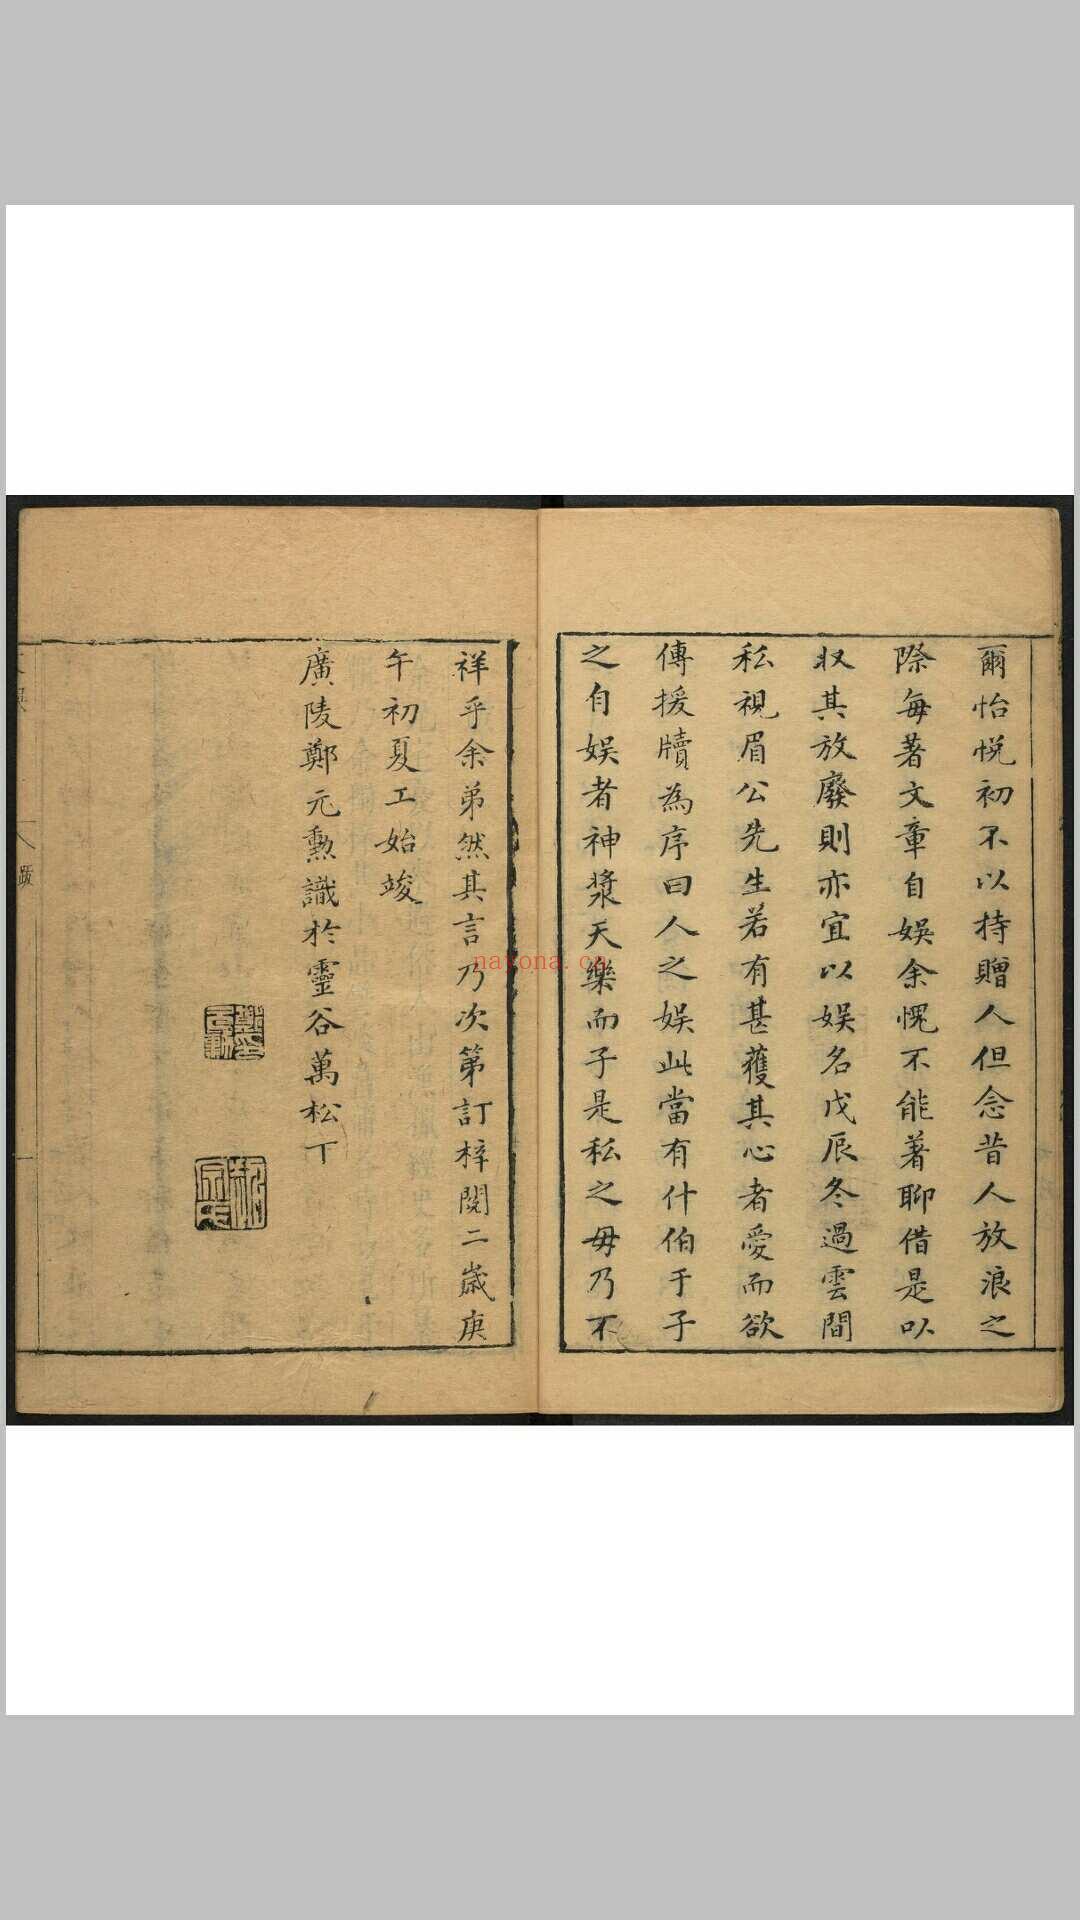 爾怡悅初不以持贈人但念昔人放浪之
際每著文章自娛余愧不能著聊借是以
収其放廢則亦宜以娛名戊辰冬過雲間
私視眉公先生若有甚獲其心者愛而欲
傳援牘為序曰人之娛此當有什伯于子
之自娛者神漿天樂而子是私之毋乃不
祥乎余弟然其言乃次第訂梓閱二歲庚
午初夏工始竣
廣陵鄭元勳識於靈谷萬松下
跋
一
nayona.cn